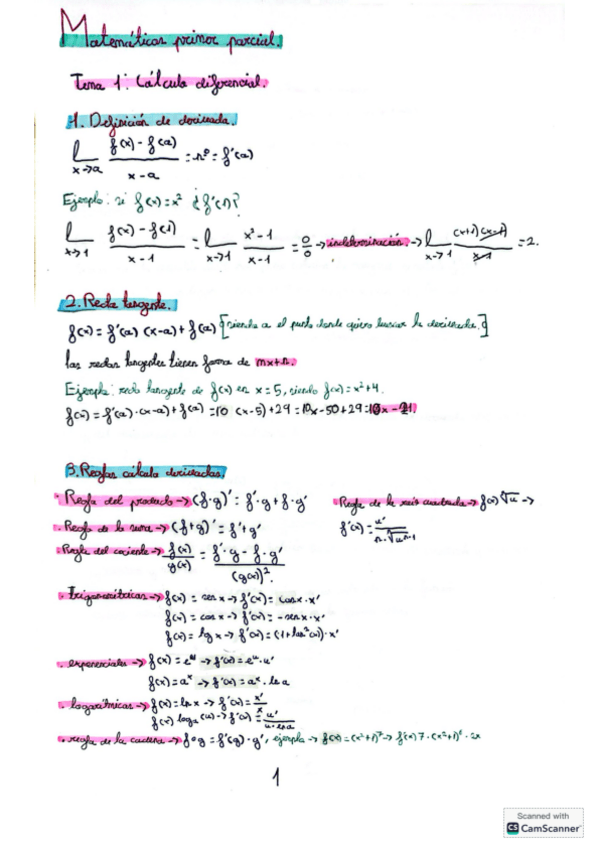 Matemáticas primer parcial.
Tema 1: Cálculo diferencial.
1. Definición de derivada.
lim x→a (f(x) - f(a))/(x - a) = nº = f'(a)
Ejemplo: si f(x) = x² ¿f'(1)?
lim x→1 (f(x) - f(1))/(x - 1) = lim x→1 (x² - 1)/(x - 1) = 0/0 → indeterminación → lim x→1 ((x+1)(x-1))/(x-1) = 2.
2. Recta tangente.
f(x) = f'(a) (x-a) + f(a) [siendo a el punto donde quiero buscar la derivada.]
las rectas tangentes tienen forma de mx+n.
Ejemplo: recta tangente de f(x) en x = 5, siendo f(x) = x²+4.
f(x) = f'(a)·(x-a) + f(a) = 10 (x-5) + 29 = 10x - 50 + 29 = 10x - 21.
3. Reglas cálculo derivadas.
· Regla del producto → (f·g)' = f'·g + f·g'
· Regla de la raíz cuadrada → f(x) ⁿ√u →
f'(x) = u'/(n·ⁿ√uⁿ⁻¹)
· Regla de la suma → (f+g)' = f' + g'
· Regla del cociente → f(x)/g(x) = (f'·g - f·g')/(g(x))².
· Trigonométricas → f(x) = sen x → f'(x) = cos x · x'
f(x) = cos x → f'(x) = - sen x · x'
f(x) = tg x → f'(x) = (1 + tan²(x)) · x'
· exponenciales → f(x) = eᵘ → f'(x) = eᵘ · u'
f(x) = aˣ → f'(x) = aˣ · ln a
· logarítmicas → f(x) = ln x → f'(x) = x'/x
f(x) loga (u) → f'(x) = u'/(u · ln a)
· regla de la cadena → f∘g = f'(g) · g', ejemplo → f(x) = (x²+1)⁷ → f'(x) 7 · (x²+1)⁶ · 2x
1
Scanned with
CS CamScanner